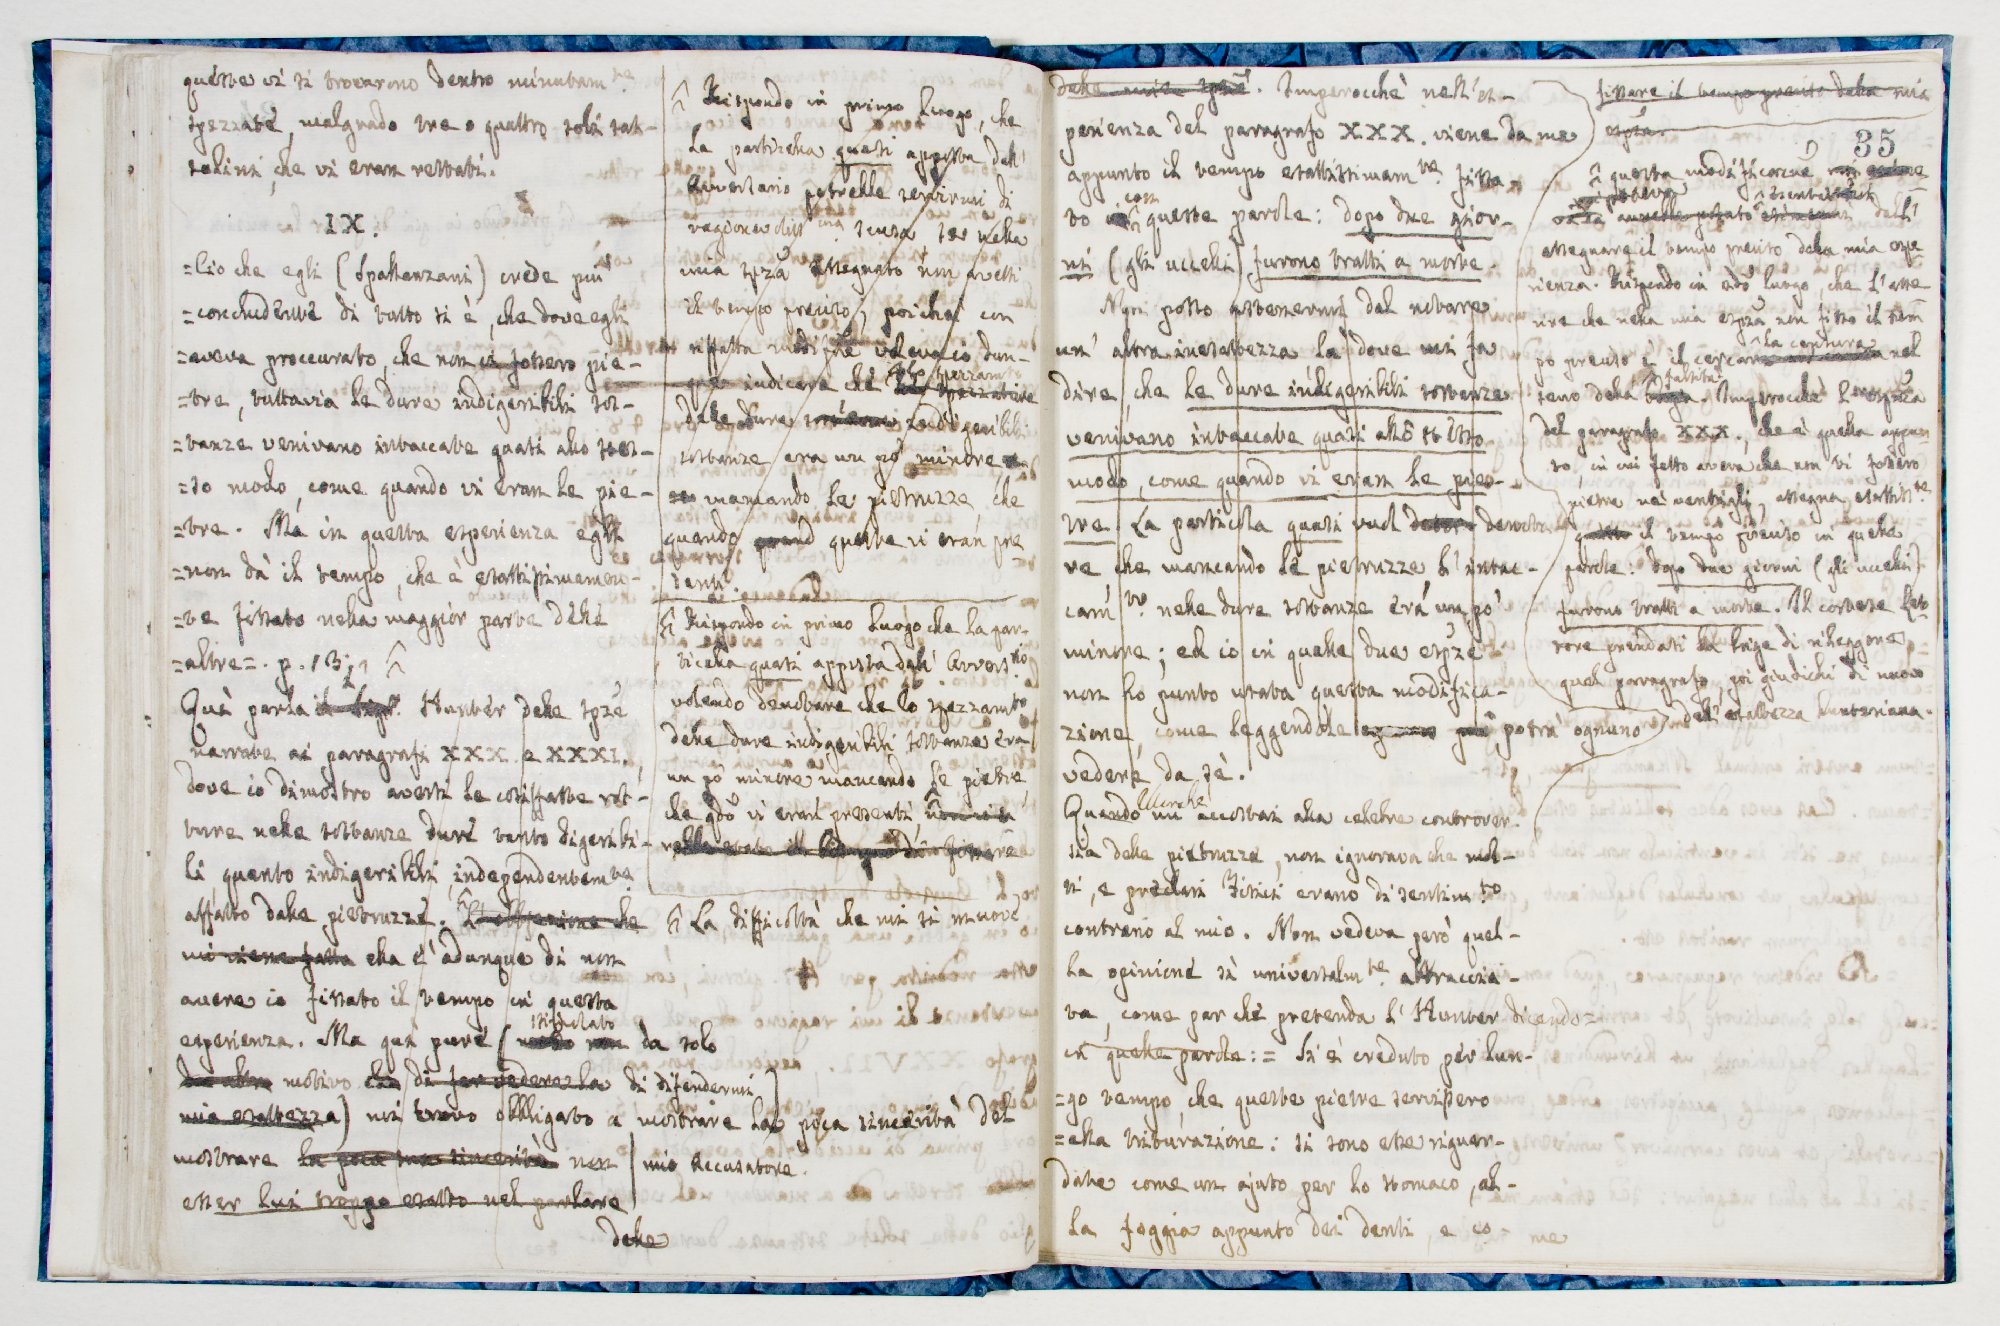 queste vi si trovarono dentro minutam.te
spezzate, malgrado tre o quattro soli sas-
solini, che vi eran restati.
IX.
=Ciò che egli (Spallanzani) crede più
=conchudente di tutto si è, che dove egli
=aveva proccurato, che non vi fossero pie-
=tre, tuttavia le dure indigeribili sos-
=tanze venivano intaccate quasi allo stes-
=so modo, come quando vi eran le pie-
=tre. Ma in questa esperienza egli
=non dà il tempo, che è esattissimamen-
=te fissato nella maggior parte delle
=altre=. p.
Quì parla il Sigr. Hunter delle spze
narrate ai paragrafi XXX e XXXI.,
dove io dimostro aversi le cosiffatte rot-
ture nelle sostanze dure tanto digeribi-
li quanto indigeribili, independentem.te
affatto dalle pietruzze. che
mi viene fatta ella è adunque di non
avere io fissato il tempo in questa
stimolato
esperienza. Ma quì pure ( da solo
motivo di far vedere la di difendermi)
mia esattezza) mi trovo obbligato a mostrare la poca sincerità del
mostrare la poca sua sincerità non mio Accusatore.
esser lui troppo esatto nel parlare
delle
Rispondo in primo luogo, che
la particella quasi apposta dall'
Avversario potrebbe servirmi di
ragione senza se nella
mia spza assegnato non avessi
il tempo preciso, poichè con
siffatta volevo io dun-
que indicare che lo spezzam.to
delle dure indigeribili
sostanze era un pò minore
mancando le pietruzze, che
quando queste vi eran pre
senti.
Rispondo in primo luogo che la par-
ticella quasi apposta dall' Avvers.rio
volendo denotare che lo spezzam.to
delle dure indigeribili sostanze era
un pò minore mancando le pietre,
che qdo vi eran presenti,
La difficoltà che mi si muove
delle mie spze. Imperocchè nell'es-
perienza del paragrafo XXX. viene da me
appunto il tempo esattissimam.te fissa
con
to queste parole: dopo due gior-
ni (gli uccelli) furono tratti a morte.
Non posso astenermi dal notare
un' altra inesattezza là dove mi fa
dire, che le dure indigeribili sostanze
venivano intaccate quasi allo stesso
modo, come quando vi eran le pie-
tre. La particola quasi vuol denota
re che mancando le pietruzze, l'intac-
cam.to nelle dure sostanze era un pò
minore; ed io in quelle due espze
non ho punto usata questa modifica-
zione, come leggendole potrà ognuno
vedere da sè.
Quando mi accostai alla celebre controver-
sia delle pietruzze, non ignorava che mol-
ti, e preclari Fisici erano di sentim.to
contrario al mio. Non vedeva però quel-
la opinione sì universalm.te abbraccia-
ta, come par che pretenda l'Hunter dicendo=
in quelle parole: = Si è creduto per lun-
=go tempo, che queste pietre servissero
=alla triturazione: si sono esse riguar-
date come un ajuto per lo stomaco, al-
la foggia appunto dei denti, e co-
me
fissare il tempo preciso della mia
espza.
35
questa modificazne
poteva
dall'
assegnare il tempo preciso della mia espe
rienza. Rispondo in 2do luogo, che l'asse
rire che nella mia espza non fisso il tem
po preciso è il cercare nel
seno della . Imperocchè l'espza
del paragrafo XXX, che è quella appun
to, in cui fatto aveva che non vi fossero
pietre ne' ventrigli, assegna esattiss.te
il tempo preciso in quelle
parole: dopo due giorni (gli uccelli)
furono tratti a morte. Il cortese Let-
tore prendasi la briga di rileggere
quel paragrafo, poi giudichi di nuovo
dell'esattezza Hunteriana.